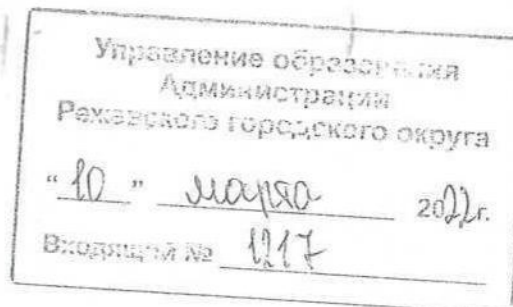 Управление образования
Администрации
Режевского городского округа
"10" марта 2022г.
Входящий № 1217